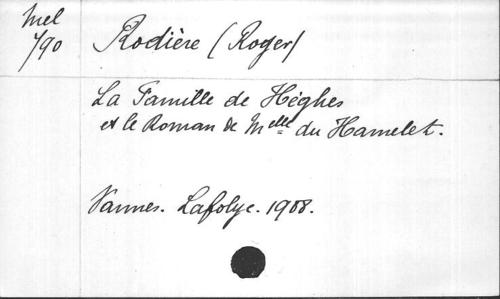 Mel
/90
Rodière (Roger)
La Famille de Héghes
et le Roman de Melle du Hamelet.
Vannes. Lafolye. 1908.